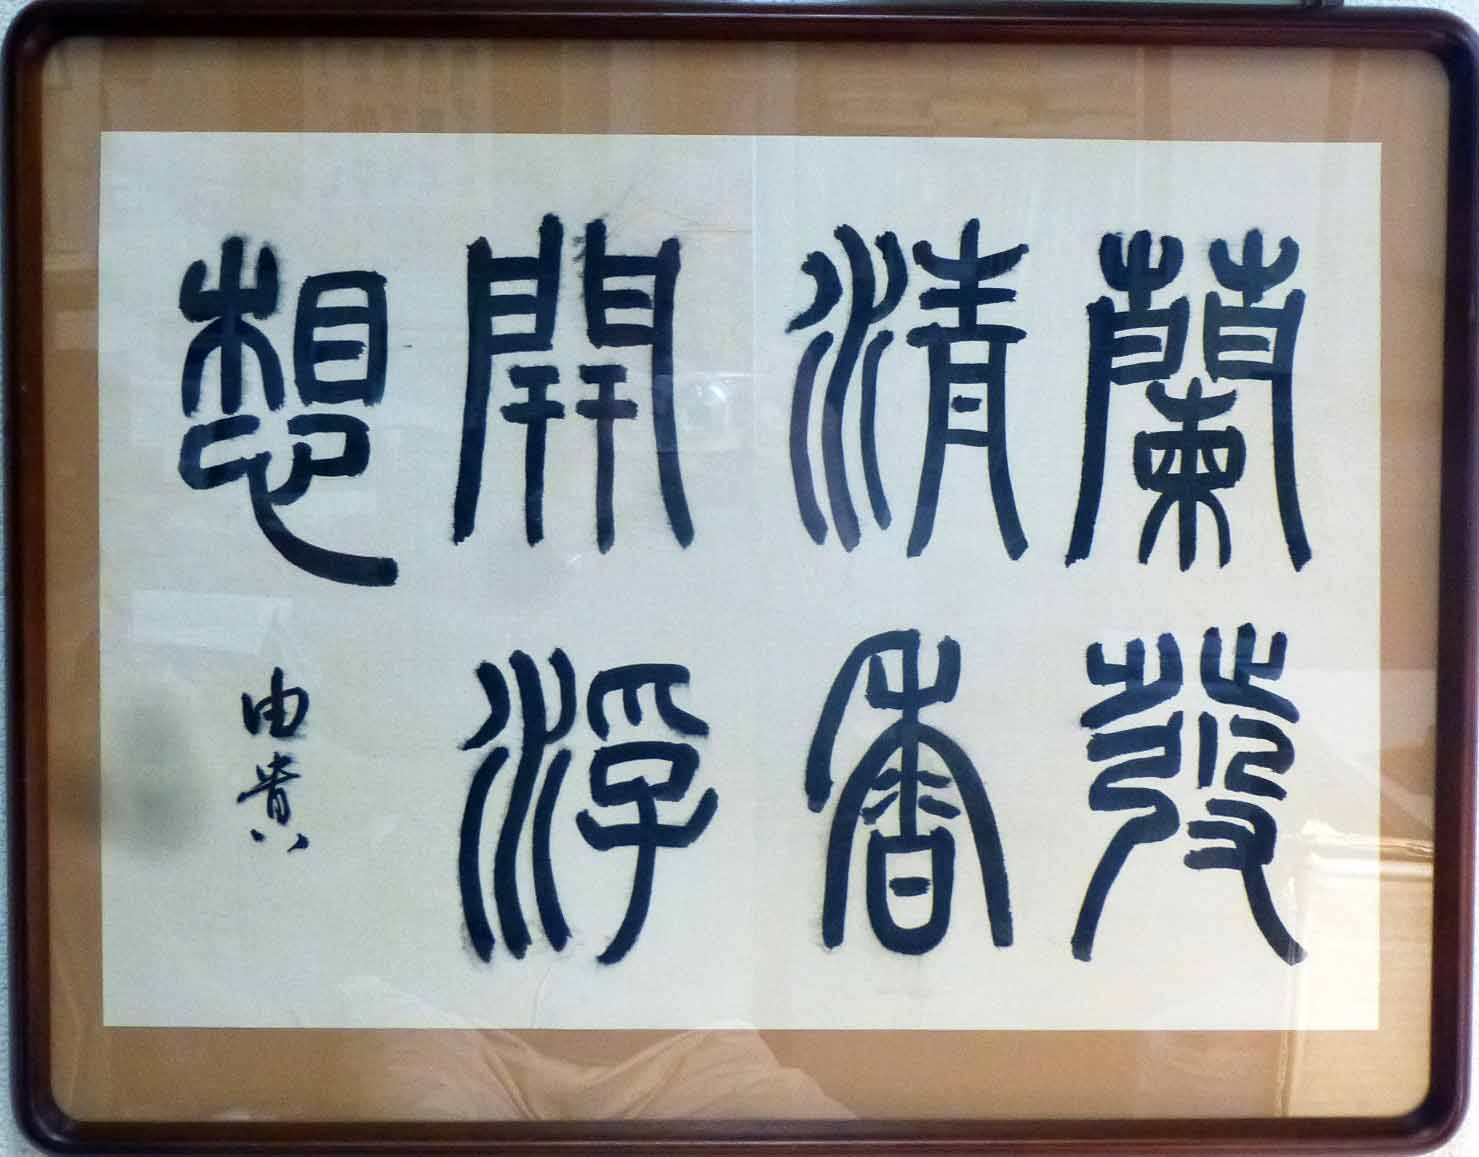 蘭發
清香
開浮
想
由貴